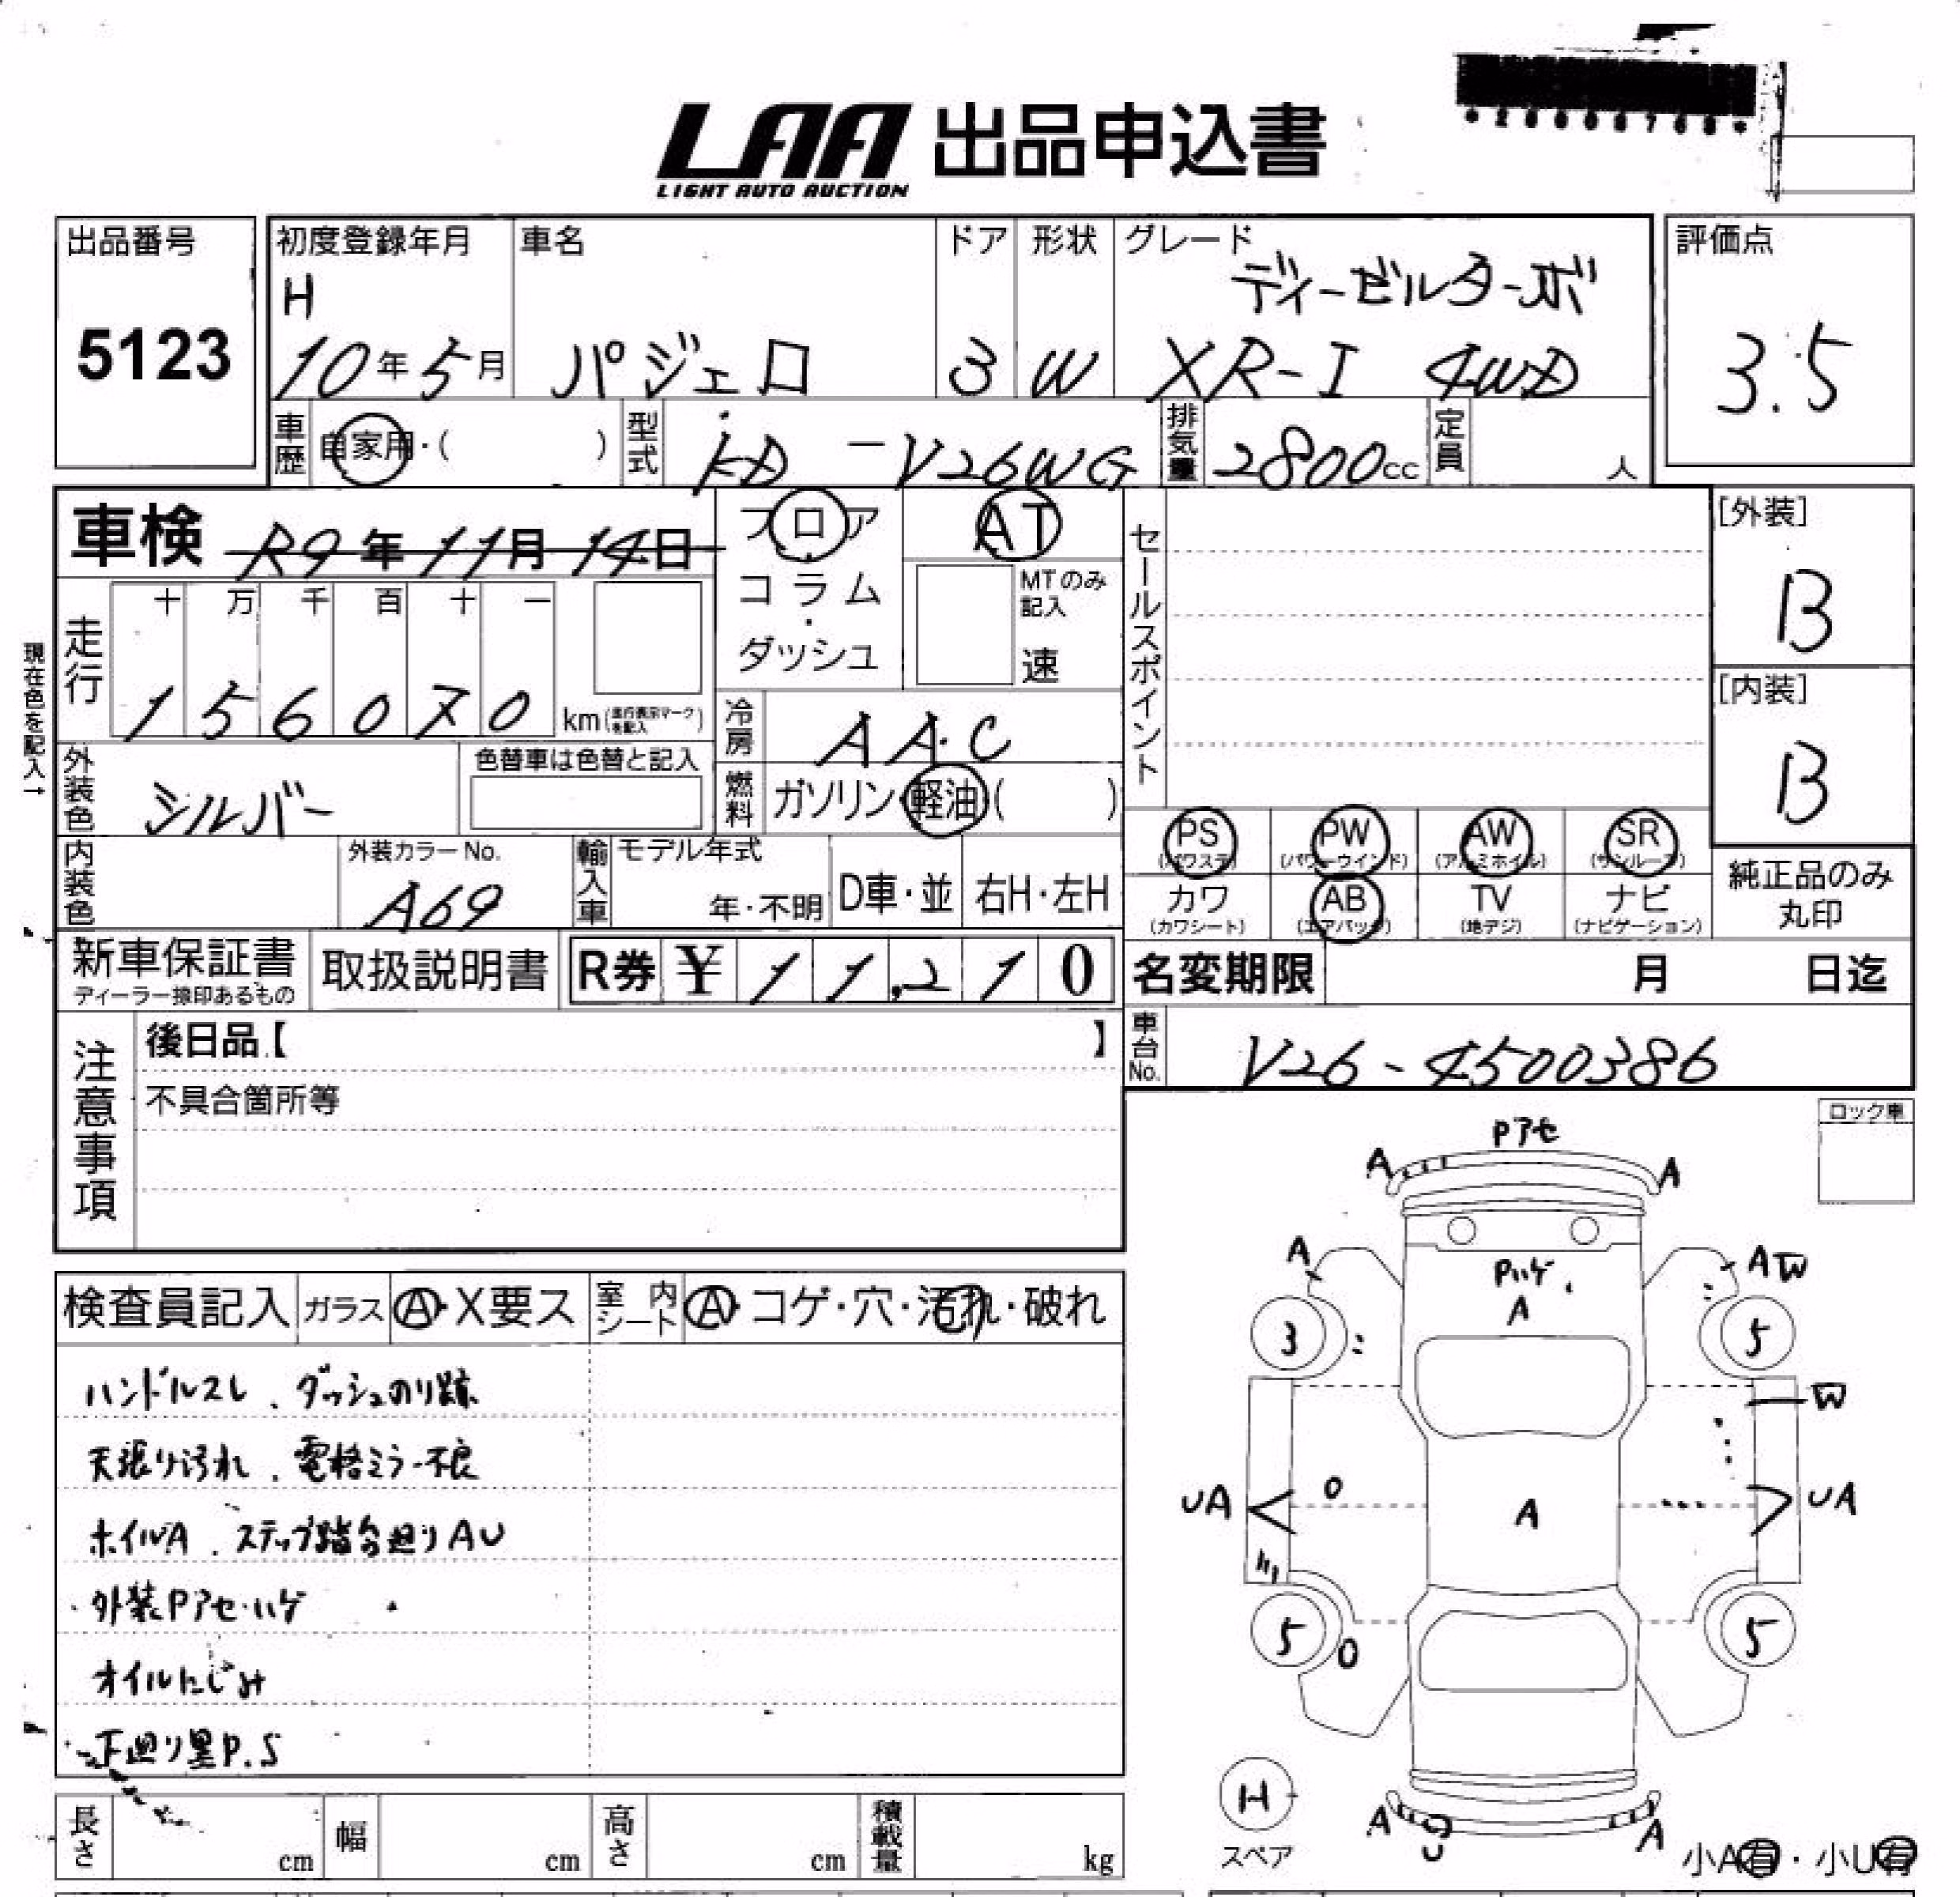 LAA 出品申込書
LIGHT AUTO AUCTION
出品番号
5123
初度登録年月
H
10年5月
車名
パジェロ
ドア
3
形状
W
グレード
ディーゼルターボ
XR-I 4WD
評価点
3.5
車歴 自家用・( )
型式 KD-V26WG
排気量 2800cc
定員 人
車検 R9年11月14日
フロア
コラム
・
ダッシュ
AT
MTのみ
記入
速
セールスポイント
[外装]
B
[内装]
B
現在色を記入→
走行
十 万 千 百 十 一
1 5 6 0 7 0 km (走行表示マークを記入)
冷房 AAC
燃料 ガソリン・軽油( )
外装色 シルバー
色替車は色替と記入
内装色
外装カラーNo.
A69
輸入車
モデル年式
年・不明
D車・並
右H・左H
PS (パワステ)
PW (パワーウインド)
AW (アルミホイル)
SR (サンルーフ)
カワ (カワシート)
AB (エアバッグ)
TV (地デジ)
ナビ (ナビゲーション)
純正品のみ
丸印
新車保証書
ディーラー捺印あるもの
取扱説明書
R券 ¥ 11,210
名変期限 月 日迄
車台No. V26-4500386
注意事項
後日品【 】
不具合箇所等
ロック車
検査員記入
ガラス A・X要ス
室内シート A・コゲ・穴・汚れ・破れ
ハンドルスレ、ダッシュのり跡
天張り汚れ、電格ミラー不良
ホイルA、ステップ踏台廻りAU
外装Pアセ・ハゲ
オイルにじみ
下廻り黒P.S
Pアセ
A A
A AW
Pハゲ
A
3 5
W
UA A UA
5 5
H
スペア
A U A
小A有・小U有
長さ cm
幅 cm
高さ cm
積載量 kg